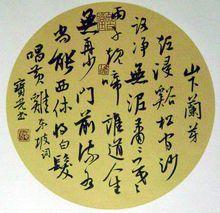 山下蘭芽
短浸谿松間沙
路淨無泥蕭蕭暮
雨子規啼誰道人生
無再少門前流水
尚能西休將白髮
唱黃雞東坡詞